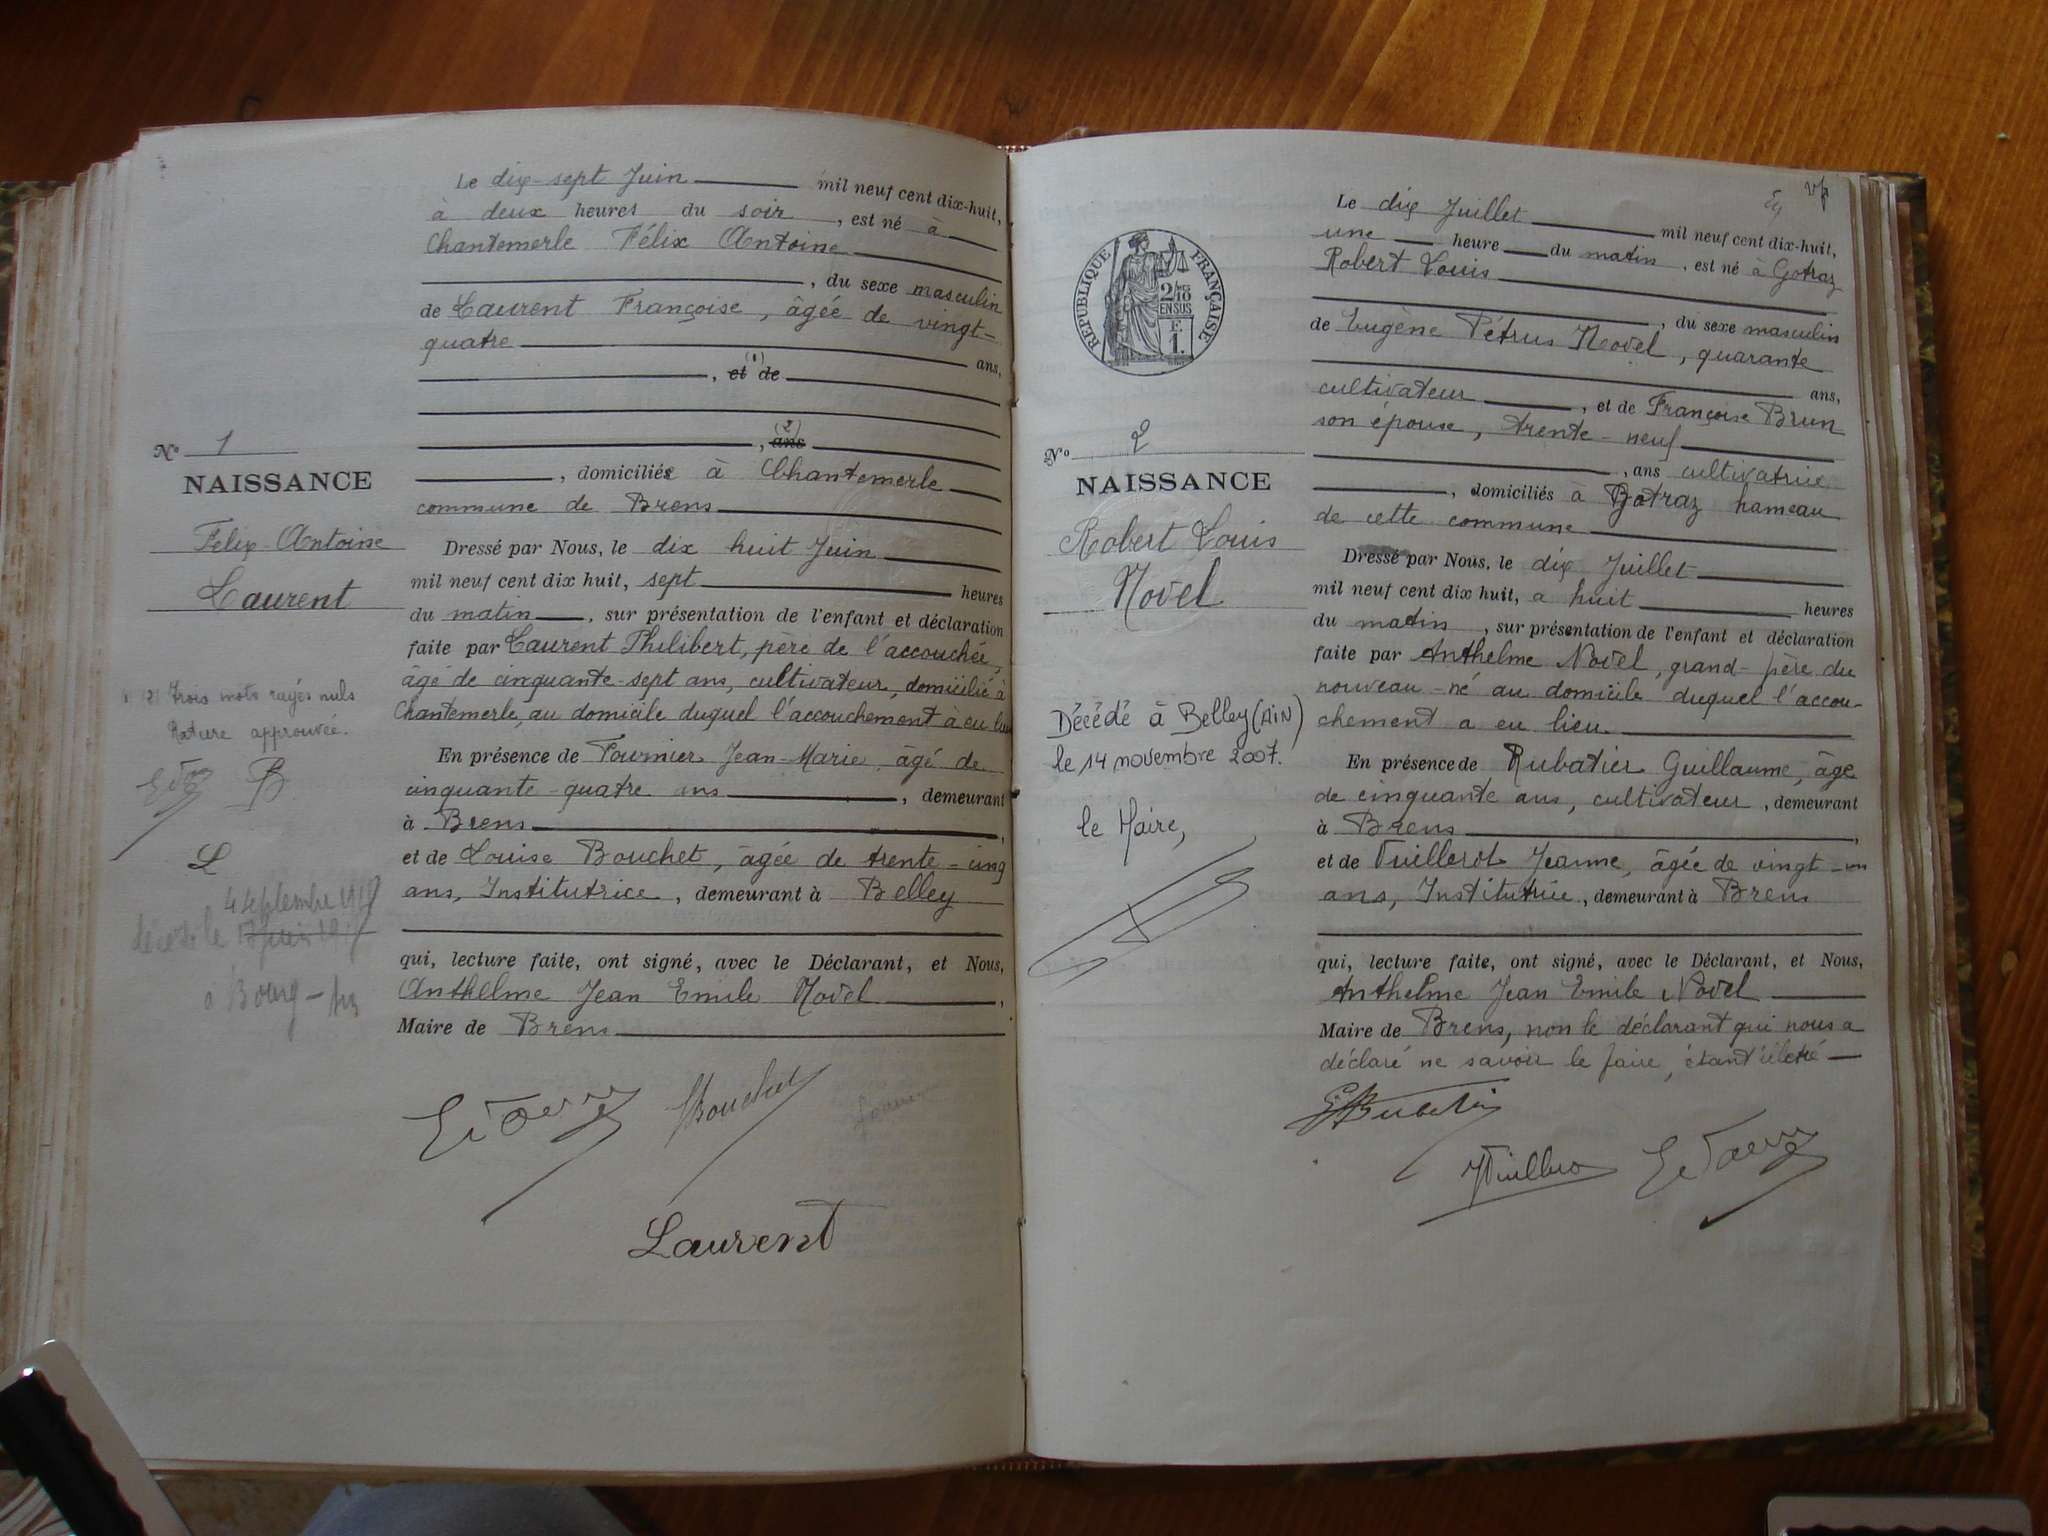 Le dix-sept Juin mil neuf cent dix-huit,
à deux heures du soir, est né à
Chantemerle Félix Antoine
, du sexe masculin
de Laurent Françoise, âgée de vingt-
quatre ans,
(1)
, et de
(2)
, ans
, domiciliés à Chantemerle
commune de Brens
Dressé par Nous, le dix huit Juin
mil neuf cent dix huit, sept heures
du matin, sur présentation de l'enfant et déclaration
faite par Laurent Philibert, père de l'accouchée,
âgé de cinquante-sept ans, cultivateur, domicilié à
Chantemerle, au domicile duquel l'accouchement à eu lieu
En présence de Fournier Jean-Marie âgé de
cinquante-quatre ans, demeurant
à Brens,
et de Louise Bouchet, âgée de trente-cinq
ans, Institutrice, demeurant à Belley
qui, lecture faite, ont signé, avec le Déclarant, et Nous,
Anthelme Jean Emile Novel,
Maire de Brens
Bouchet
Laurent
No 1
NAISSANCE
Félix-Antoine
Laurent
1 (2) Trois mots rayés nuls
Rature approuvée.
B
L
4 septembre 191
décédé le
à Bourg
RÉPUBLIQUE FRANÇAISE
2/10
EN SUS
F.
1.
No 2
NAISSANCE
Robert Louis
Novel
Décédé à Belley (AIN)
le 14 novembre 2007.
le Maire,
Le dix Juillet mil neuf cent dix-huit,
une heure du matin, est né à Gotraz
Robert Louis
, du sexe masculin
de Eugène Pétrus Novel, quarante
ans,
cultivateur, et de Françoise Brun
son épouse, trente-neuf
, ans cultivatrice
, domiciliés à Gotraz hameau
de cette commune
Dressé par Nous, le dix Juillet
mil neuf cent dix huit, à huit heures
du matin, sur présentation de l'enfant et déclaration
faite par Anthelme Novel, grand-père du
nouveau-né au domicile duquel l'accou-
chement a eu lieu.
En présence de Rubatier Guillaume, âgé
de cinquante ans, cultivateur, demeurant
à Brens,
et de Vuillerot Jeanne, âgée de vingt-un
ans, Institutrice, demeurant à Brens
qui, lecture faite, ont signé, avec le Déclarant, et Nous,
Anthelme Jean Emile Novel
Maire de Brens, non le déclarant qui nous a
déclaré ne savoir le faire, étant illétré